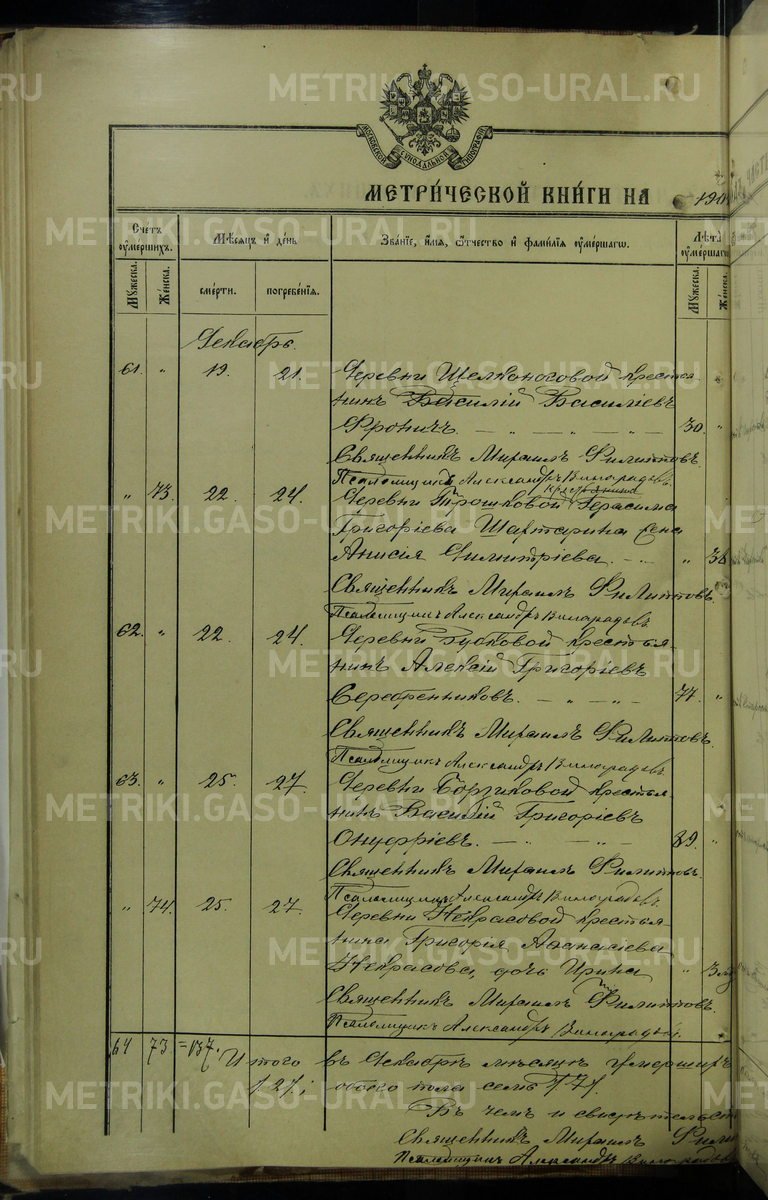 МОСКОВСКОЙ СѴНОДАЛЬНОЙ ТИПОГРАФІИ
МЕТРИ́ЧЕСКОЙ КНИ́ГИ НА 190
Сче́тъ оу҆ме́ршихъ.
Мꙋ́жеска.
Же́нска.
Мѣ́сяцъ и҆ де́нь
сме́рти.
погребе́нїя.
Зва́нїе, и҆́мя, ѻ҆́тчество и҆ фами́лїя оу҆ме́ршагѡ.
Лѣ́та оу҆ме́ршагѡ
Мꙋ́жеска.
Же́нска
Декабрь.
61. „ 19. 21. Деревни Щелконоговой крестья-
нинъ Василій Васильевъ
Фроничъ. — „ — „ — „ — 30. „
Священникъ Михаилъ Филипповъ.
Псаломщикъ Александръ Виноградовъ.
крестьянина
„ 73. 22. 24. Деревни Трошковой Герасима
Григоріева Шаптарина жена
Анисія Димитріева. — „ — „ 38
Священникъ Михаилъ Филипповъ
Псаломщикъ Александръ Виноградовъ
62. „ 22. 24. Деревни крестья
нинъ Алексій Григоріевъ
Серебренниковъ. — „ — „ — 77. „
Священникъ Михаилъ Филипповъ.
Псаломщикъ Александръ Виноградовъ
63. „ 25. 27. Деревни крестья-
нинъ Василій Григоріевъ
Онуфріевъ. — „ — „ — 39. „
Священникъ Михаилъ Филипповъ.
Псаломщикъ Александръ Виноградовъ.
„ 74. 25. 27. Деревни Некрасовой крестья-
нина Григорія Аѳанасіева
Некрасова, дочь Ирина „ 3
Священникъ Михаилъ Филипповъ.
Псаломщикъ Александръ Виноградовъ.
64 73. =137. Итого въ Декабрѣ мѣсяцѣ умершихъ
обоего пола семь /7/.
Въ чемъ и свидѣтельст
Священникъ Михаилъ Фили
Псаломщикъ Александръ Виноградовъ
METRIKI.GASO-URAL.RU